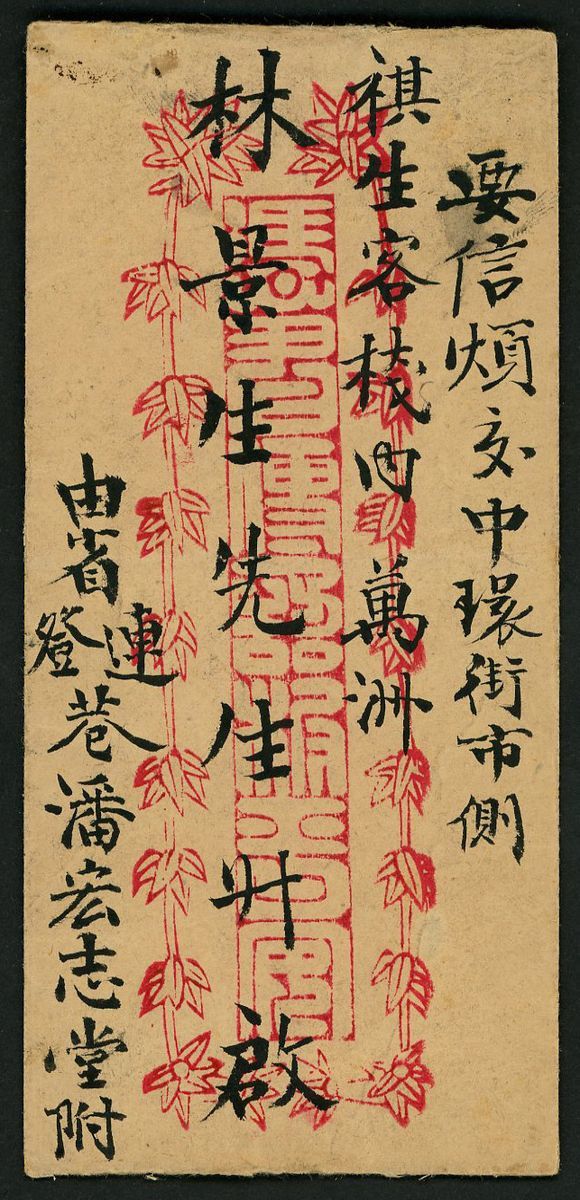 要信煩交中環街市側
祺生客棧内萬洲
林景生先生升啟
由省連登巷潘宏志堂附